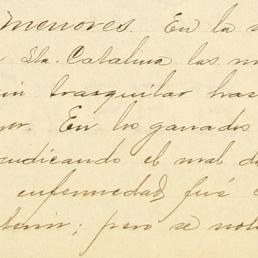 menores. En la
Sta. Catalina las
trasquilar has
En los ganados
udicando el mal d
enfermedad, fué
; pero se not